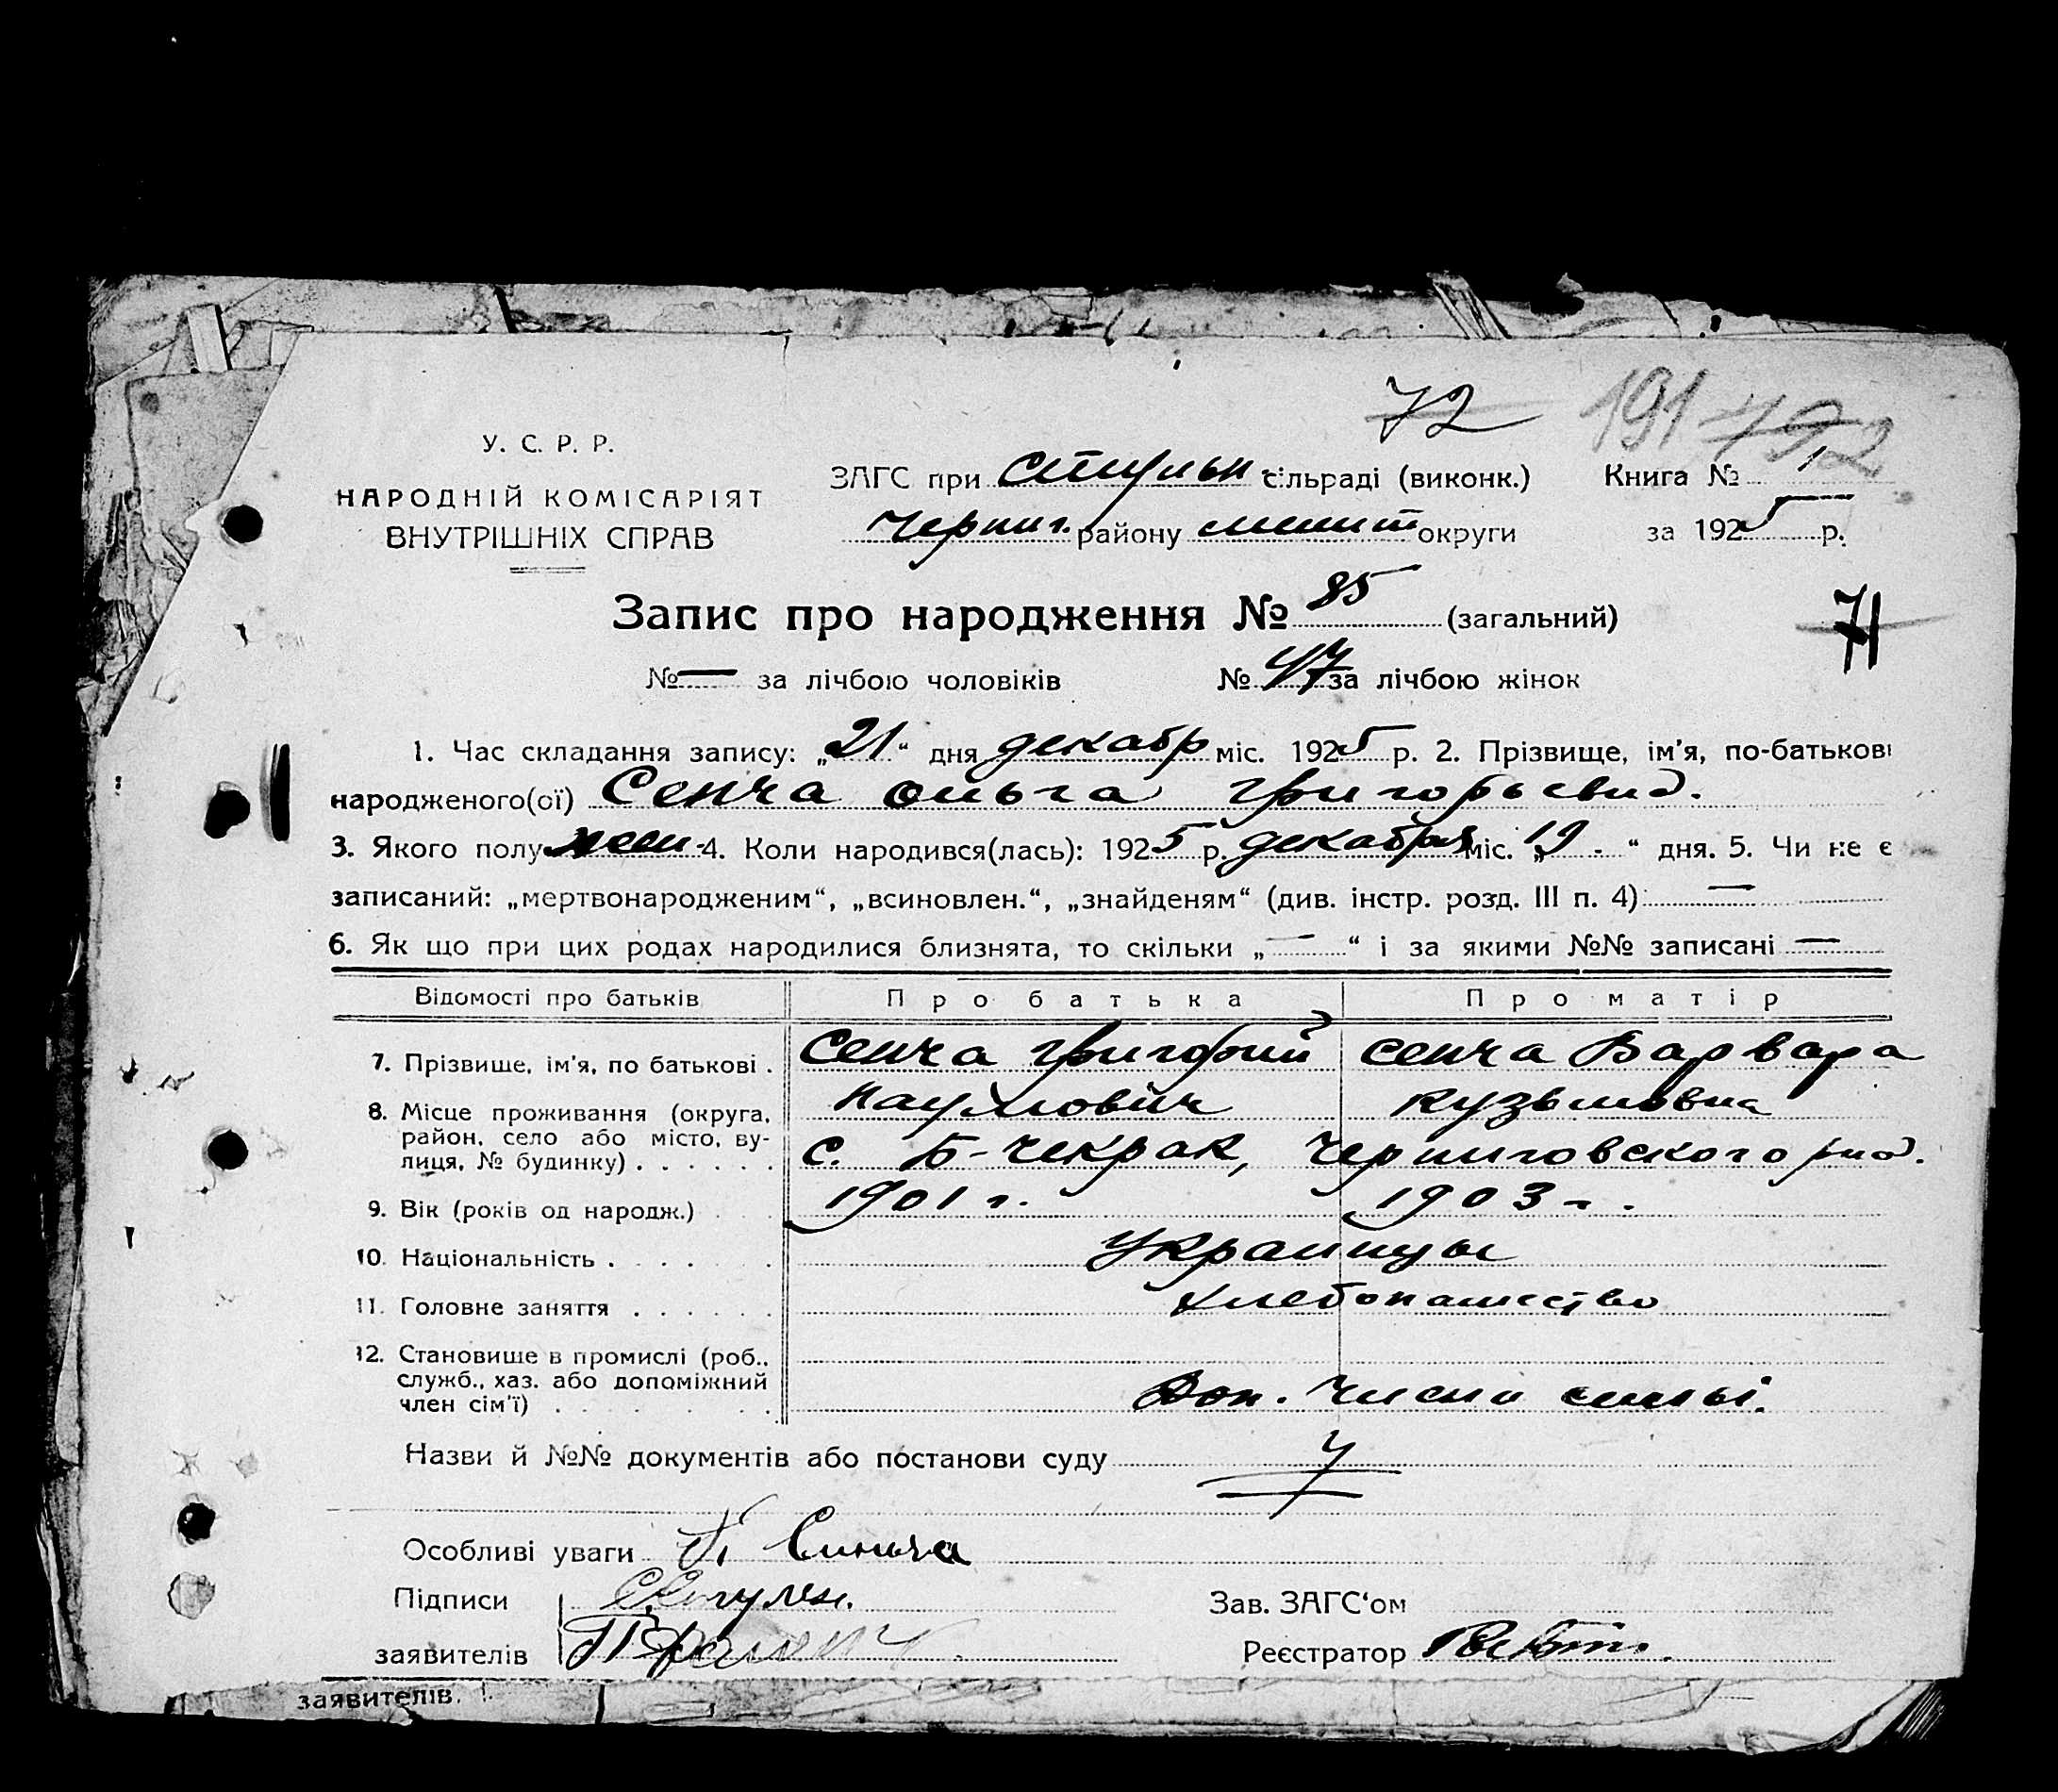 72 191 192
У. С. Р. Р.
НАРОДНІЙ КОМІСАРІЯТ
ВНУТРІШНІХ СПРАВ
ЗАГС при Стульн сільраді (виконк.) Книга № 1
Черниг. району мелит округи за 1925 р.
Запис про народження № 85 (загальний)
71
№ — за лічбою чоловіків № 47 за лічбою жінок
1. Час складання запису: „21“ дня декабр міс. 1925 р. 2. Прізвище, ім’я, по-батькові
народженого(ої) Сенча Ольга Григорьевна.
3. Якого полу жен. 4. Коли народився(лась): 1925 р. декабря міс. „19“ дня. 5. Чи не є
записаний: „мертвонародженим“, „всиновлен.“, „знайденям“ (див. інстр. розд. III п. 4): —
6. Як що при цих родах народилися близнята, то скільки „—“ і за якими №№ записані —
Відомості про батьків Про батька Про матір
7. Прізвище, ім’я, по батькові . Сенча Григорий Сенча Варвара
Наумович Кузьмовна
8. Місце проживання (округа,
район, село або місто, ву-
лиця, № будинку) . . . . . . с. Б-Чекрак, Черниговского
9. Вік (років од народж.) 1901 г. 1903 г.
10. Національність . . . . . . Украинцы
11. Головне заняття . . . . . . хлебопашество
12. Становище в промислі (роб.,
служб., хаз. або допоміжний
член сім’ї) . . . . . . Доп. члены семьи.
Назви й №№ документів або постанови суду
Особливі уваги Г. Синча
Підписи
заявителів
Зав. ЗАГС‘ом
Реєстратор
заявителів.